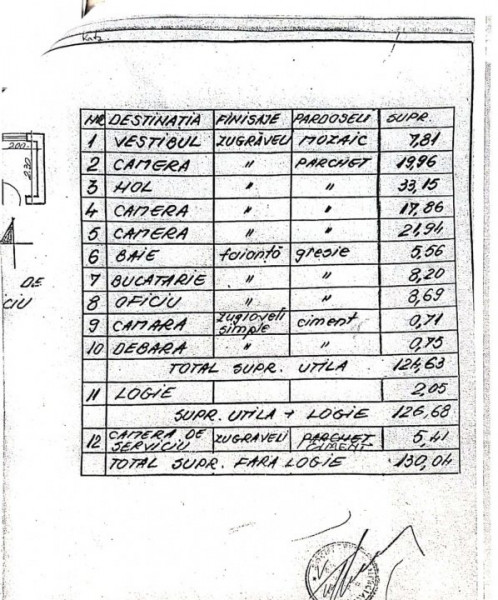 NR DESTINATIA FINISAJE PARDOSELI SUPR.
1 VESTIBUL ZUGRĂVELI MOZAIC 7,81
2 CAMERA " PARCHET 19,96
3 HOL " " 33,15
4 CAMERA " " 17,86
5 CAMERA " " 21,94
6 BAIE faianță gresie 5,56
7 BUCATARIE " " 8,20
8 OFICIU " " 8,69
9 CAMARA zugrăveli simple ciment 0,71
10 DEBARA " " 0,75
TOTAL SUPR. UTILA 124,63
11 LOGIE 2,05
SUPR. UTILA + LOGIE 126,68
12 CAMERA DE SERVICIU ZUGRAVELI PARCHET CIMENT 5,41
TOTAL SUPR. FARA LOGIE 130,04
200
230
DE
CIU